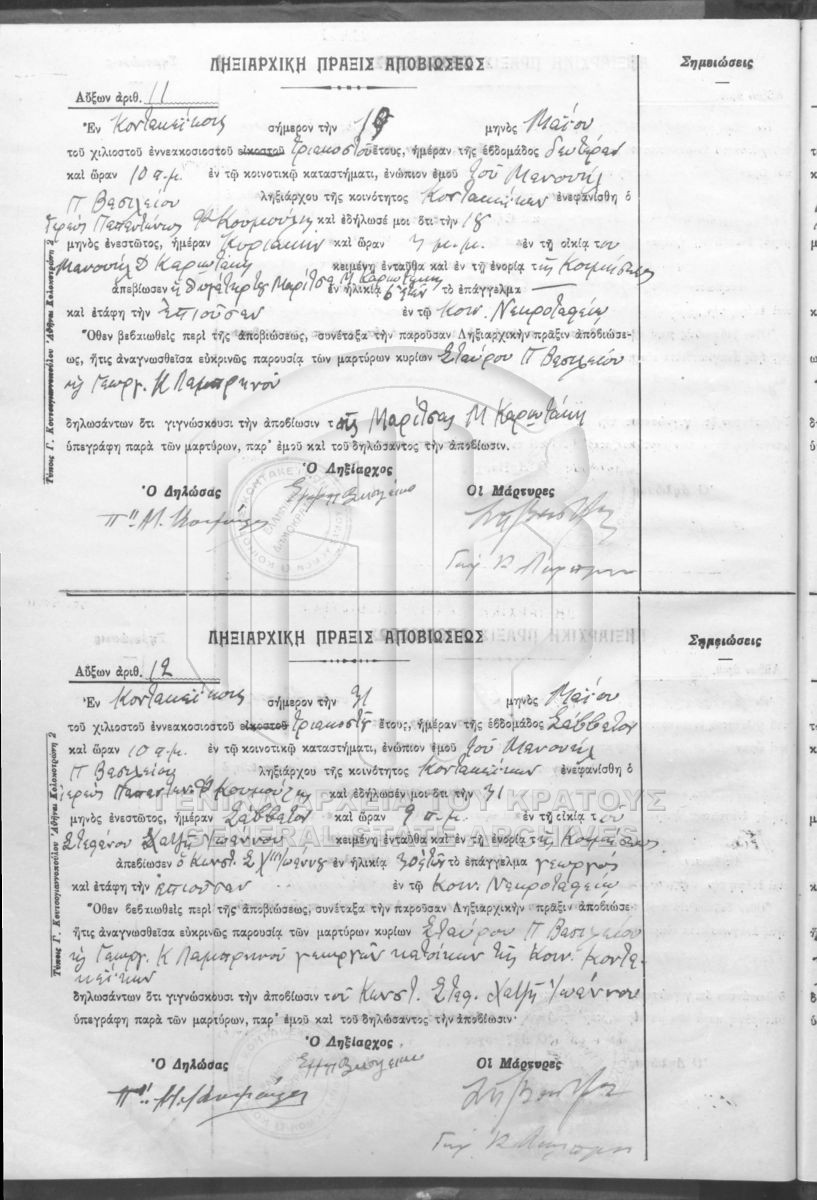 ΛΗΞΙΑΡΧΙΚΗ ΠΡΑΞΙΣ ΑΠΟΒΙΩΣΕΩΣ
Σημειώσεις
Αὔξων ἀριθ. 11
Ἐν Κοντακέϊκοις σήμερον τὴν 19 μηνὸς Μαΐου
τοῦ χιλιοστοῦ ἐννεακοσιοστοῦ εἰκοστοῦ τριακοστοῦ ἔτους, ἡμέραν τῆς ἑβδομάδος Δευτέραν
καὶ ὥραν 10 π.μ. ἐν τῷ κοινοτικῷ καταστήματι, ἐνώπιον ἐμοῦ τοῦ Μανουήλ
Π Βασιλείου ληξιάρχου τῆς κοινότητος Κοντακέϊκων ἐνεφανίσθη ὁ
Ἱερεύς καὶ ἐδήλωσέ μοι ὅτι τὴν 18
μηνὸς ἐνεστῶτος, ἡμέραν Κυριακὴν καὶ ὥραν 3 μ.μ. ἐν τῇ οἰκίᾳ του
Μανουήλ Δ Καρωτάκη κειμένῃ ἐνταῦθα καὶ ἐν τῇ ἐνορίᾳ τῆς Κοιμήσεως
ἀπεβίωσεν ἡ θυγάτηρ του Μαρίτσα Μ Καρωτάκη ἐν ἡλικίᾳ 6 ἐτῶν τὸ ἐπάγγελμα —
καὶ ἐτάφη τὴν ἐπιοῦσαν ἐν τῷ Κοιν. Νεκροταφείῳ
Ὅθεν βεβαιωθεὶς περὶ τῆς ἀποβιώσεως, συνέταξα τὴν παροῦσαν Ληξιαρχικὴν πρᾶξιν ἀποβιώσε-
ως, ἥτις ἀναγνωσθεῖσα εὐκρινῶς παρουσίᾳ τῶν μαρτύρων κυρίων Σταύρου Π Βασιλείου
κ Γεωργ. Κ Λαμπρινοῦ
δηλωσάντων ὅτι γιγνώσκουσι τὴν ἀποβίωσιν τῆς Μαρίτσας Μ Καρωτάκη
ὑπεγράφη παρὰ τῶν μαρτύρων, παρ' ἐμοῦ καὶ τοῦ δηλώσαντος τὴν ἀποβίωσιν.
Ὁ Ληξίαρχος
Ὁ Δηλώσας Οἱ Μάρτυρες
Τύποις Γ. Κουτσογιαννοπούλου Ἀθῆναι Κολοκοτρώνη 2
ΛΗΞΙΑΡΧΙΚΗ ΠΡΑΞΙΣ ΑΠΟΒΙΩΣΕΩΣ
Σημειώσεις
Αὔξων ἀριθ. 12
Ἐν Κοντακέϊκοις σήμερον τὴν 31 μηνὸς Μαΐου
τοῦ χιλιοστοῦ ἐννεακοσιοστοῦ εἰκοστοῦ τριακοστοῦ ἔτους, ἡμέραν τῆς ἑβδομάδος Σάββατον
καὶ ὥραν 10 π.μ. ἐν τῷ κοινοτικῷ καταστήματι, ἐνώπιον ἐμοῦ τοῦ Μανουήλ
Π Βασιλείου ληξιάρχου τῆς κοινότητος Κοντακέϊκων ἐνεφανίσθη ὁ
ἱερεύς καὶ ἐδήλωσέν μοι ὅτι τὴν 31
ΓΕΝΙΚΑ ΑΡΧΕΙΑ ΤΟΥ ΚΡΑΤΟΥΣ
μηνὸς ἐνεστῶτος, ἡμέραν Σάββατον καὶ ὥραν 9 π.μ. ἐν τῇ οἰκίᾳ τοῦ
GENERAL STATE ARCHIVES
Στεφάνου Χατζῆ Ἰωάννου κειμένῃ ἐνταῦθα καὶ ἐν τῇ ἐνορίᾳ τῆς Κοιμήσεως
ἀπεβίωσεν ὁ Κωνστ. Σ Χ''Ἰωάννου ἐν ἡλικίᾳ 30 ἐτῶν τὸ ἐπάγγελμα γεωργός
καὶ ἐτάφη τὴν ἐπιοῦσαν ἐν τῷ Κοιν. Νεκροταφείῳ
Ὅθεν βεβαιωθεὶς περὶ τῆς ἀποβιώσεως, συνέταξα τὴν παροῦσαν Ληξιαρχικὴν πρᾶξιν ἀποβιώσε-
ἥτις ἀναγνωσθεῖσα εὐκρινῶς παρουσίᾳ τῶν μαρτύρων κυρίων Σταύρου Π Βασιλείου
κ Γεωργ. Κ Λαμπρινοῦ γεωργῶν κατοίκων τῆς Κοιν. Κοντα-
κεΐκων
δηλωσάντων ὅτι γιγνώσκουσι τὴν ἀποβίωσιν τοῦ Κωνστ. Στεφ. Χατζῆ Ἰωάννου
ὑπεγράφη παρὰ τῶν μαρτύρων, παρ' ἐμοῦ καὶ τοῦ δηλώσαντος τὴν ἀποβίωσιν·
Ὁ Ληξίαρχος
Ὁ Δηλώσας Οἱ Μάρτυρες
Τύποις Γ. Κουτσογιαννοπούλου Ἀθῆναι Κολοκοτρώνη 2